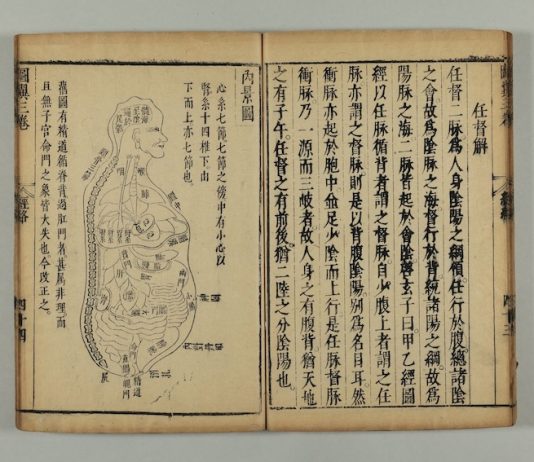 圖翼三卷
經絡
任督解
任督二脉爲人身陰陽之綱領任行於腹總諸陰
之會故爲陰脉之海督行於背統諸陽之綱故爲
陽脉之海二脉皆起於會陰啓玄子曰甲乙經圖
經以任脉循背者謂之督脉自少腹上者謂之任
脉亦謂之督脉則是以背腹陰陽別爲名目耳然
衝脉亦起於胞中並足少陰而上行是任脉督脉
衝脉乃一源而三岐者故人身之有腹背猶天地
之有子午任督之有前後猶二陸之分陰陽也。
內景圖
心系七節七節之傍中有小心以
腎系十四椎下由
下而上亦七節也
髓海
精道
舊圖有精道循脊背過肛門者甚屬非理而
且無子宮命門之象皆大失也今改正之。
圖翼三卷
經絡
四十四